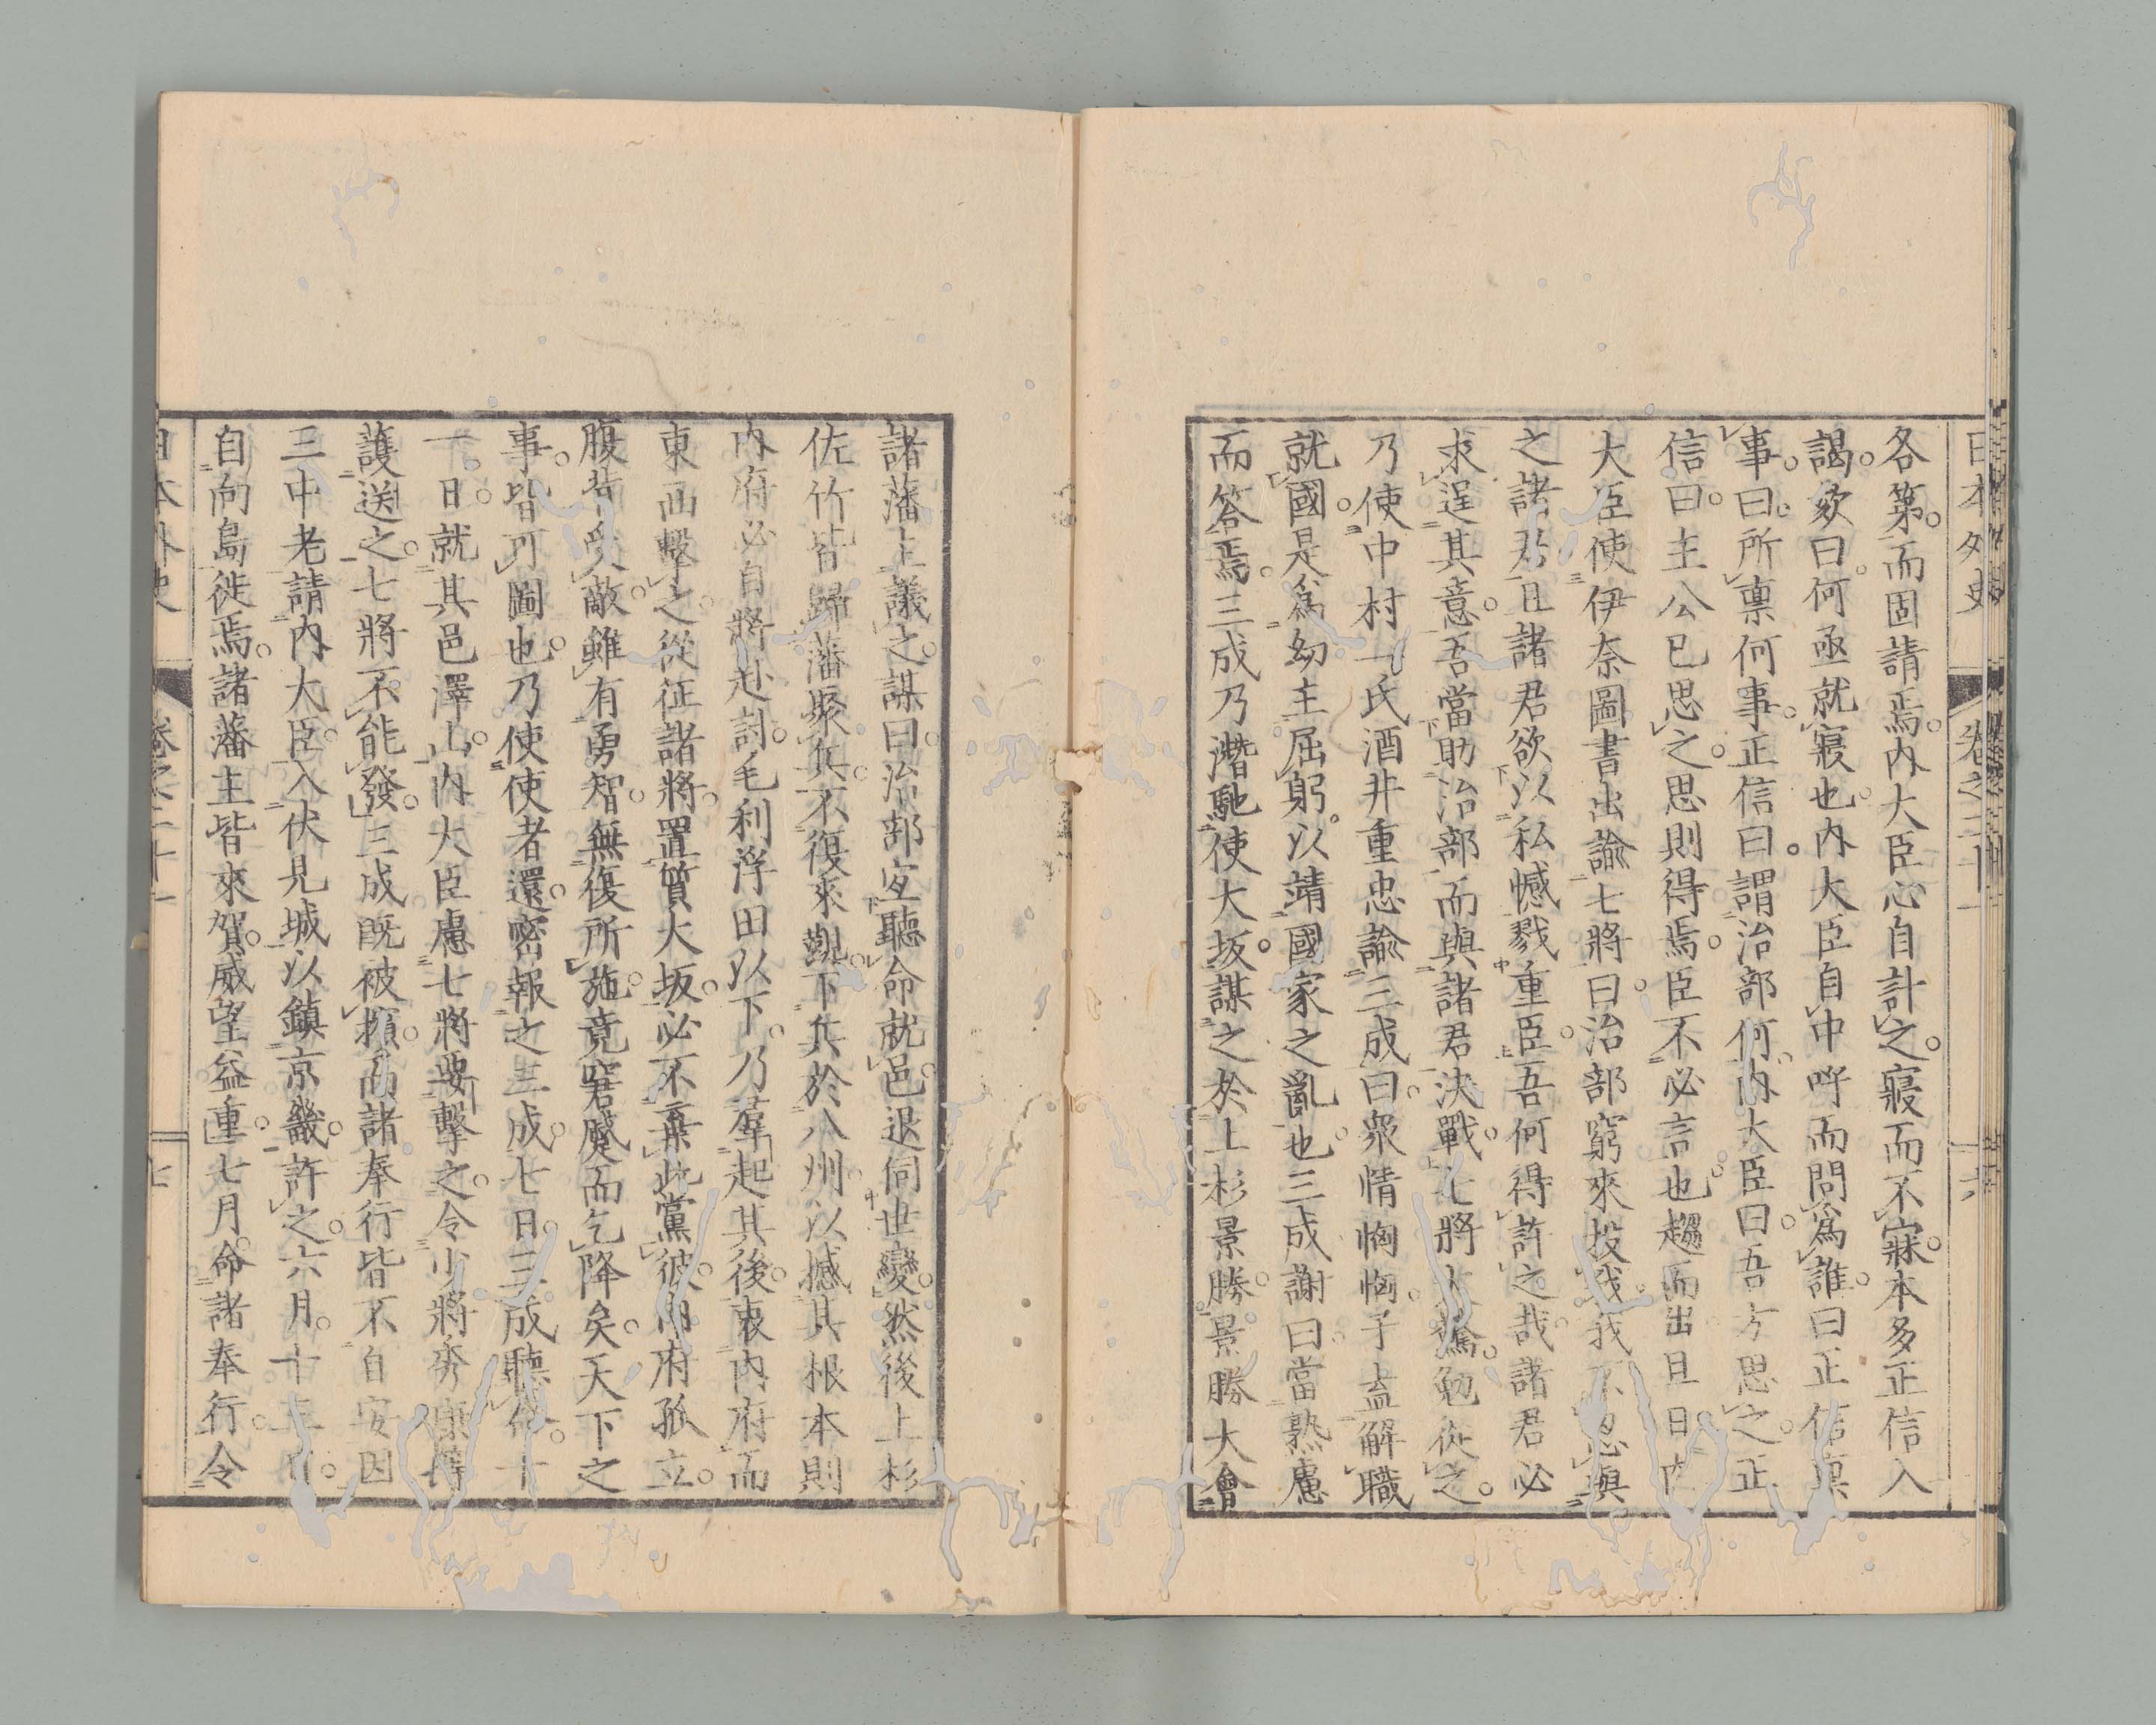 日本外史 卷之二十一 六
各第。而固請焉。内大臣心自計之。寢而不寐。本多正信入
謁。欬曰。何亟就寢也。内大臣自中呼而問爲誰。曰正信稟
事。曰。所稟何事。正信曰。謂治部何。内大臣曰。吾方思之。正
信曰。主公已思之。思則得焉。臣不必言也。趨而出。旦日内
大臣使伊奈圖書出諭七將曰。治部窮來投我。我不忍與
之諸君。且諸君欲以私憾戮重臣。吾何得許之哉。諸君必
求逞其意。吾當助治部而與諸君決戰。七將大驚。勉從之。
乃使中村一氏酒井重忠諭三成曰。衆情恟恟。子盍解職
就國。是爲幼主屈躬。以靖國家之亂也。三成謝曰。當熟慮
而答焉。三成乃潛馳使大坂。謀之於上杉景勝。景勝大會
諸藩主議之。謀曰。治部宜聽命就邑。退伺世變。然後上杉
佐竹皆歸藩聚兵。不復來覲。下兵於八州。以撼其根本。則
内府必自將赴討。毛利浮田以下。乃羣起其後。衷内府而
東西擊之。從征諸將。置質大坂。必不棄此黨彼。内府孤立。
腹背受敵。雖有勇智。無復所施。竟窘蹙而乞降矣。天下之
事。皆可圖也。乃使使者還。密報之三成。七日。三成聽命。十
一日。就其邑澤山。内大臣慮七將要擊之。令少將秀康等
護送之。七將不能發。三成既被擯。而諸奉行皆不自安。因
三中老請内大臣。入伏見城。以鎮京畿。許之。六月。十三日。
自向島徙焉。諸藩主皆來賀。威望益重。七月。命諸奉行。令
日本外史 卷之二十一 七